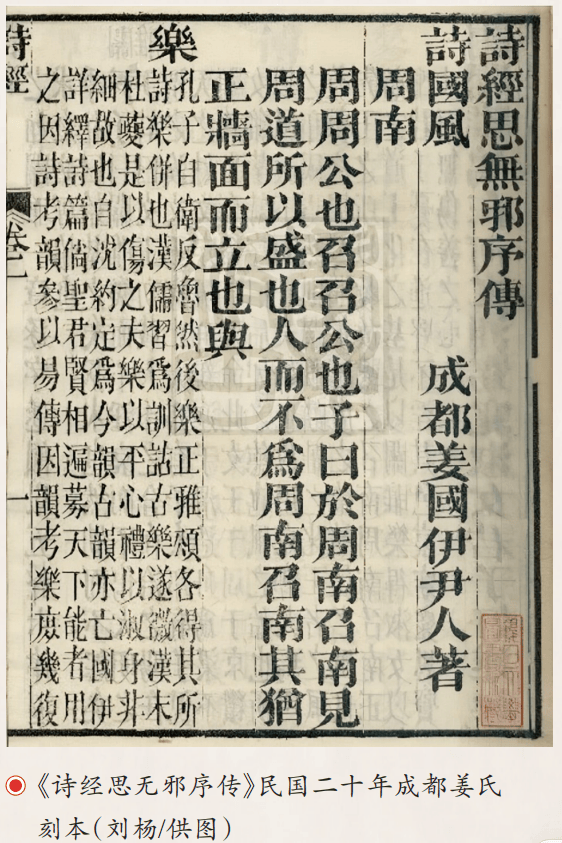 詩經思無邪序傳
詩國風 成都姜國伊尹人著
周南
周周公也召召公也子曰於周南召南見
周道所以盛也人而不爲周南召南其猶
正牆面而立也與
樂
孔子自衛反魯然後樂正雅頌各得其所
詩樂併也漢儒習爲訓詁古樂遂微漢末
杜夔是以傷之夫樂以平心禮以淑身非
細故也自沈約定爲今韻古韻亦亡國伊
詳繹詩篇倘聖君賢相遍募天下能者用
之因詩考韻參以易傳因韻考樂庶幾復
詩經 卷一 一
《诗经思无邪序传》民国二十年成都姜氏
刻本(刘杨/供图)